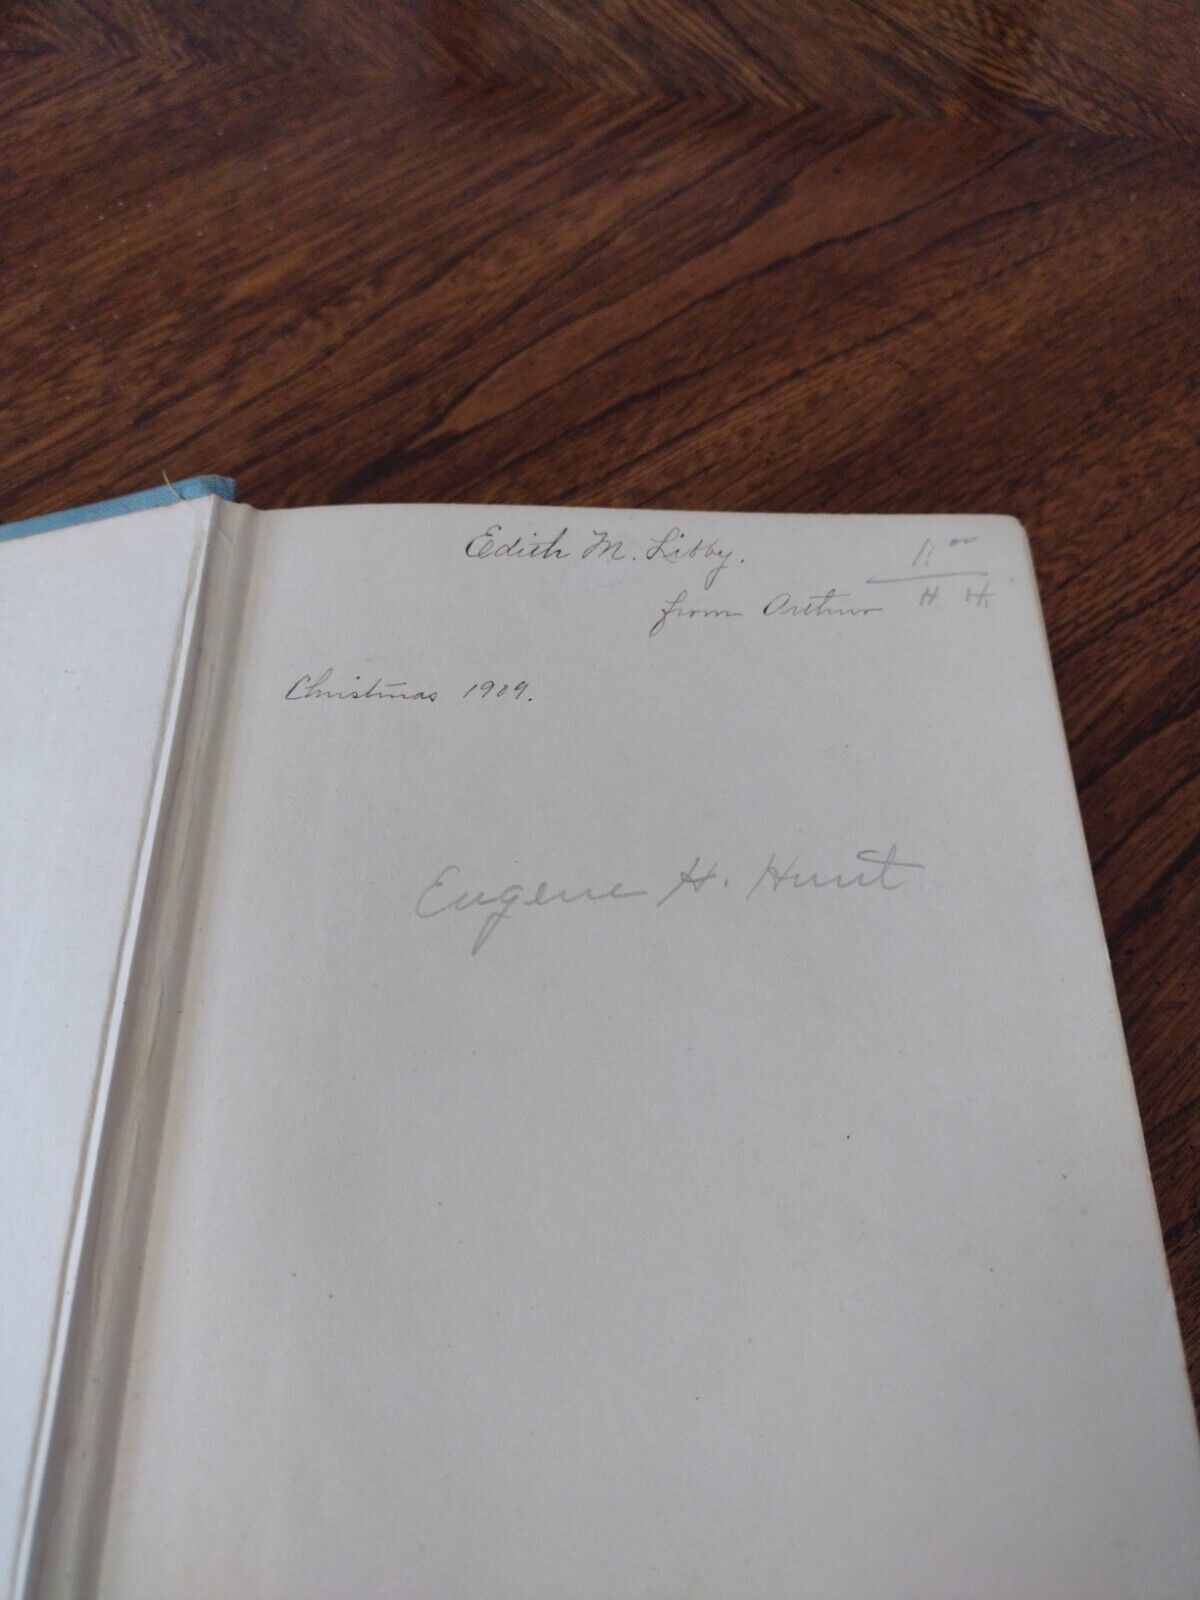 Edith M. Libby.
from Arthur
H H.
Christmas 1909.
Eugene H. Hunt